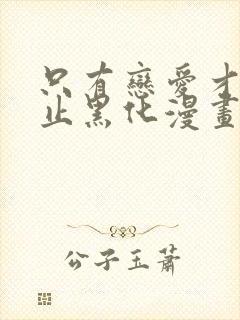 只有戀愛才
止黑化漫畫
公子玉蕭